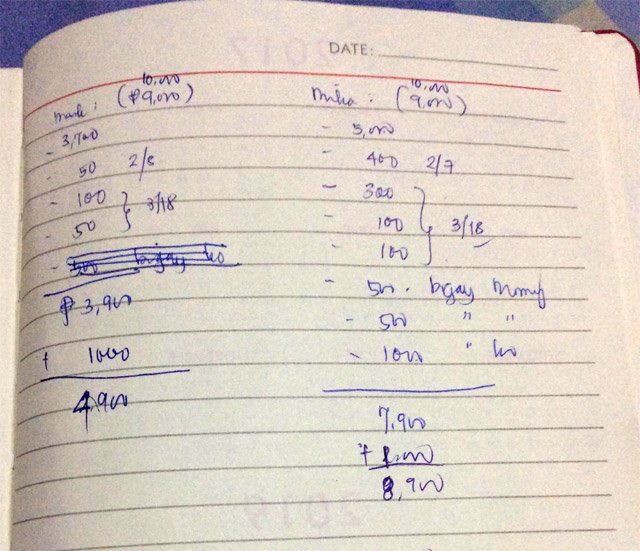 DATE:
10,000
(₱9,000)
- 3,700
- 50 2/8
- 100
- 50 } 3/18
- 500 bigay
₱3,900
+ 1000
4,900
10,000
(9,000)
- 5,000
- 400 2/7
- 300
- 100 } 3/18
- 100
- 500 - bigay mommy
- 500 " "
- 1000 "
7,900
+ 1,000
8,900